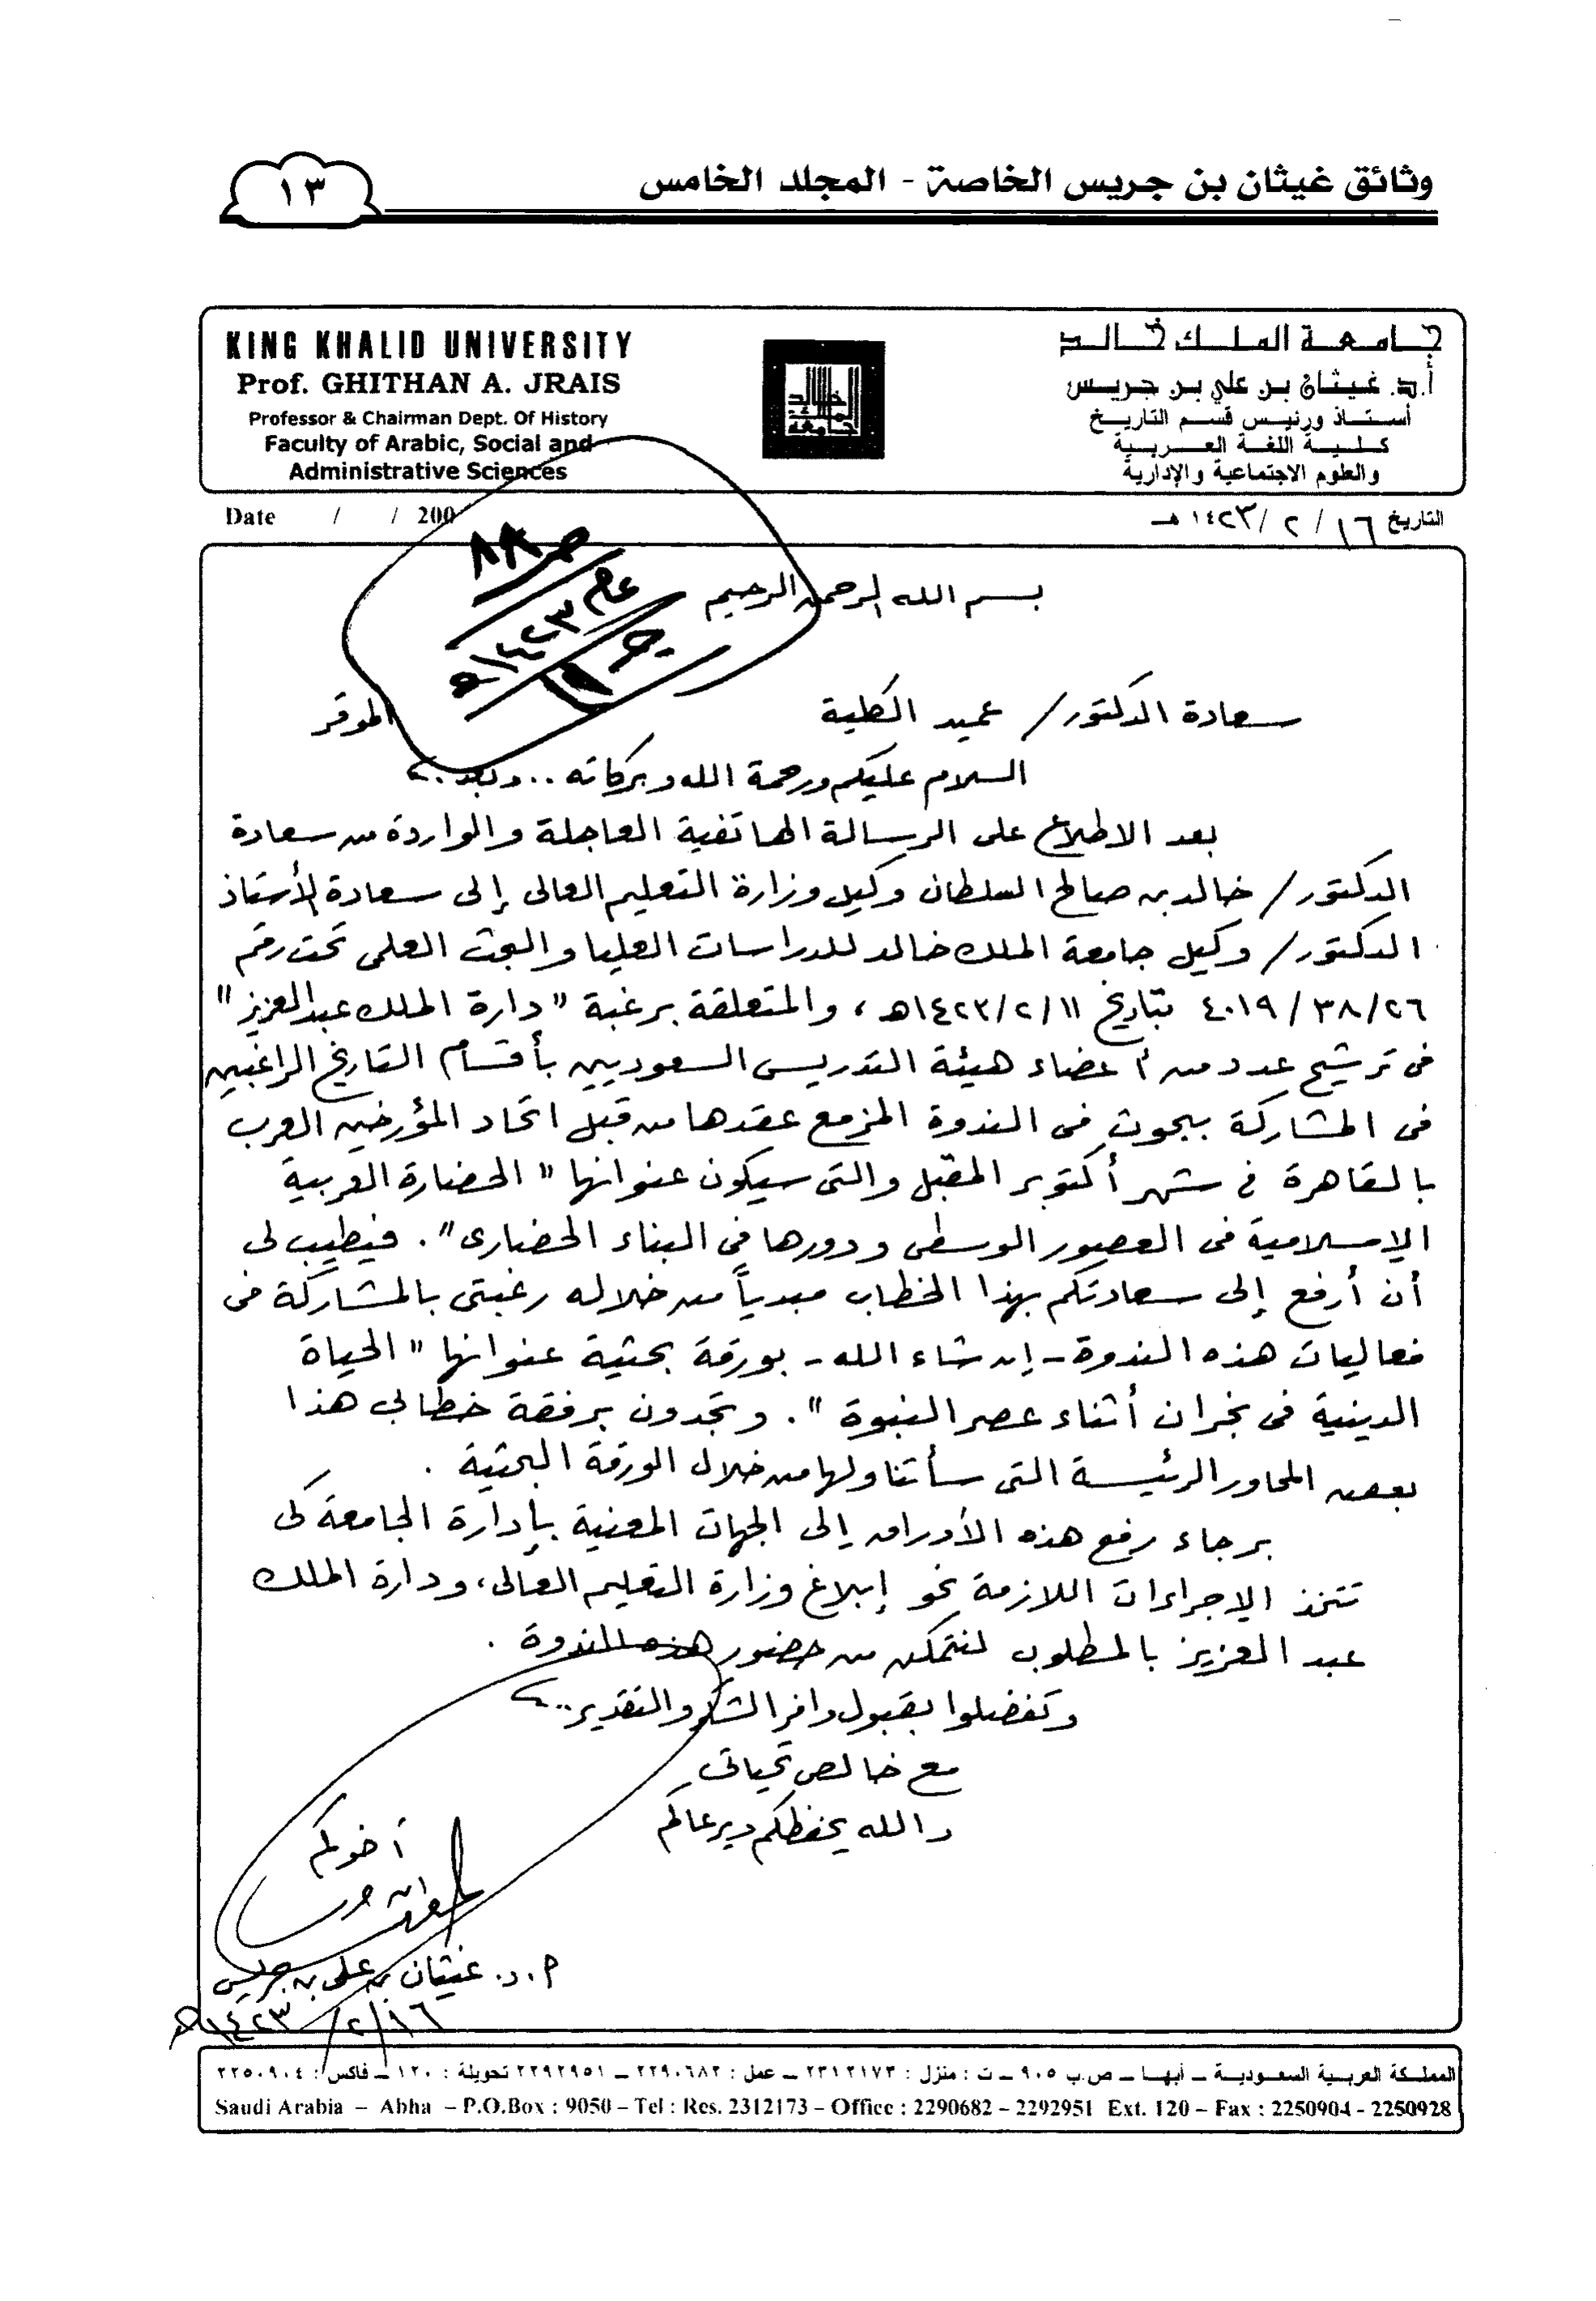 وثائق غيثان بن جريس الخاصة - المجلد الخامس
١٣
جامعة الملك خالد
أ.د. غيثان بن علي بن جريس
أستاذ ورئيس قسم التاريخ
كلية اللغة العربية
والعلوم الاجتماعية والإدارية
KING KHALID UNIVERSITY
Prof. GHITHAN A. JRAIS
Professor & Chairman Dept. Of History
Faculty of Arabic, Social and
Administrative Sciences
التاريخ ١٦ / ٢ / ١٤٢٣ هـ
Date / / 200
بسم الله الرحمن الرحيم
ص ٨٨
عام ١٤٢٣هـ
سعادة الدكتور / عميد الكلية الموقر
السلام عليكم ورحمة الله وبركاته .. وبعد ..
بعد الاطلاع على الرسالة الهاتفية العاجلة والواردة من سعادة
الدكتور / خالد بن صالح السلطان وكيل وزارة التعليم العالى إلى سعادة الأستاذ
الدكتور / وكيل جامعة الملك خالد للدراسات العليا والبحث العلمى تحت رقم
٤٠١٩/٣٨/٢٦ بتاريخ ١٤٢٣/٢/١١هـ، والمتعلقة برغبة "دارة الملك عبدالعزيز"
فى ترشيح عدد من أعضاء هيئة التدريس السعوديين بأقسام التاريخ الراغبين
فى المشاركة ببحوث فى الندوة المزمع عقدها من قبل اتحاد المؤرخين العرب
بالقاهرة فى شهر أكتوبر المقبل والتى سيكون عنوانها "الحضارة العربية
الإسلامية فى العصور الوسطى ودورها فى البناء الحضارى". فيطيب لى
أن أرفع إلى سعادتكم بهذا الخطاب مبدياً من خلاله رغبتى بالمشاركة فى
فعاليات هذه الندوة - إن شاء الله - بورقة بحثية عنوانها "الحياة
الدينية فى نجران أثناء عصر النبوة". وتجدون برفقة خطابى هذا
بعض المحاور الرئيسة التى سأتناولها من خلال الورقة البحثية .
برجاء رفع هذه الأوراق إلى الجهات المعنية بإدارة الجامعة لكى
تتخذ الإجراءات اللازمة نحو إبلاغ وزارة التعليم العالى، ودارة الملك
عبد العزيز بالمطلوب لنتمكن من حضور هذه الندوة .
وتفضلوا بقبول وافر الشكر والتقدير ..
مع خالص تحياتى
والله يحفظكم ويرعاكم
أخوكم
أ.د. غيثان بن على بن جريس
١٤٢٣/٢/١٦هـ
المملكة العربية السعودية – أبها – ص.ب ٩٠٥٠ – ت : منزل : ٢٣١٢١٧٣ – عمل : ٢٢٩٠٦٨٢ – ٢٢٩٢٩٥١ تحويلة : ١٢٠ – فاكس : ٢٢٥٠٩٠٤
Saudi Arabia – Abha – P.O.Box : 9050 – Tel : Res. 2312173 – Office : 2290682 – 2292951 Ext. 120 – Fax : 2250904 - 2250928